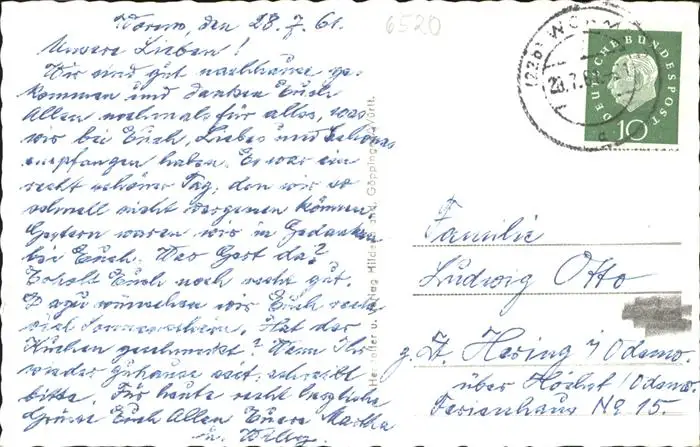 Worms, den 28.7.61.
6520
Unsere Lieben!
Wir sind gut nachhause ge-
kommen und danken Euch
Allen nochmals für alles, was
wir bei Euch, Liebes und Schönes
empfangen haben. Es war ein
recht schöner Tag, den wir so
schnell nicht vergessen können
Gestern waren wir in Gedanken
bei Euch. War Gert da?
Erholt Euch noch recht gut.
Dazu wünschen wir Euch recht
viel Sonnenschein. Hat der
Kuchen geschmeckt? Wenn Ihr
wieder zuhause seit, schreibt
bitte. Für heute recht herzliche
Grüsse Euch Allen Euere Martha
u. Willy
Hersteller u. Verlag Göppingen/Württ.
(22b) WORMS
28.7.61
DEUTSCHE BUNDESPOST
10
Familie
Ludwig Otto
z. Zt. Hesing i/Odenw.
über Höchst/Odenw.
Ferienhaus No 15.